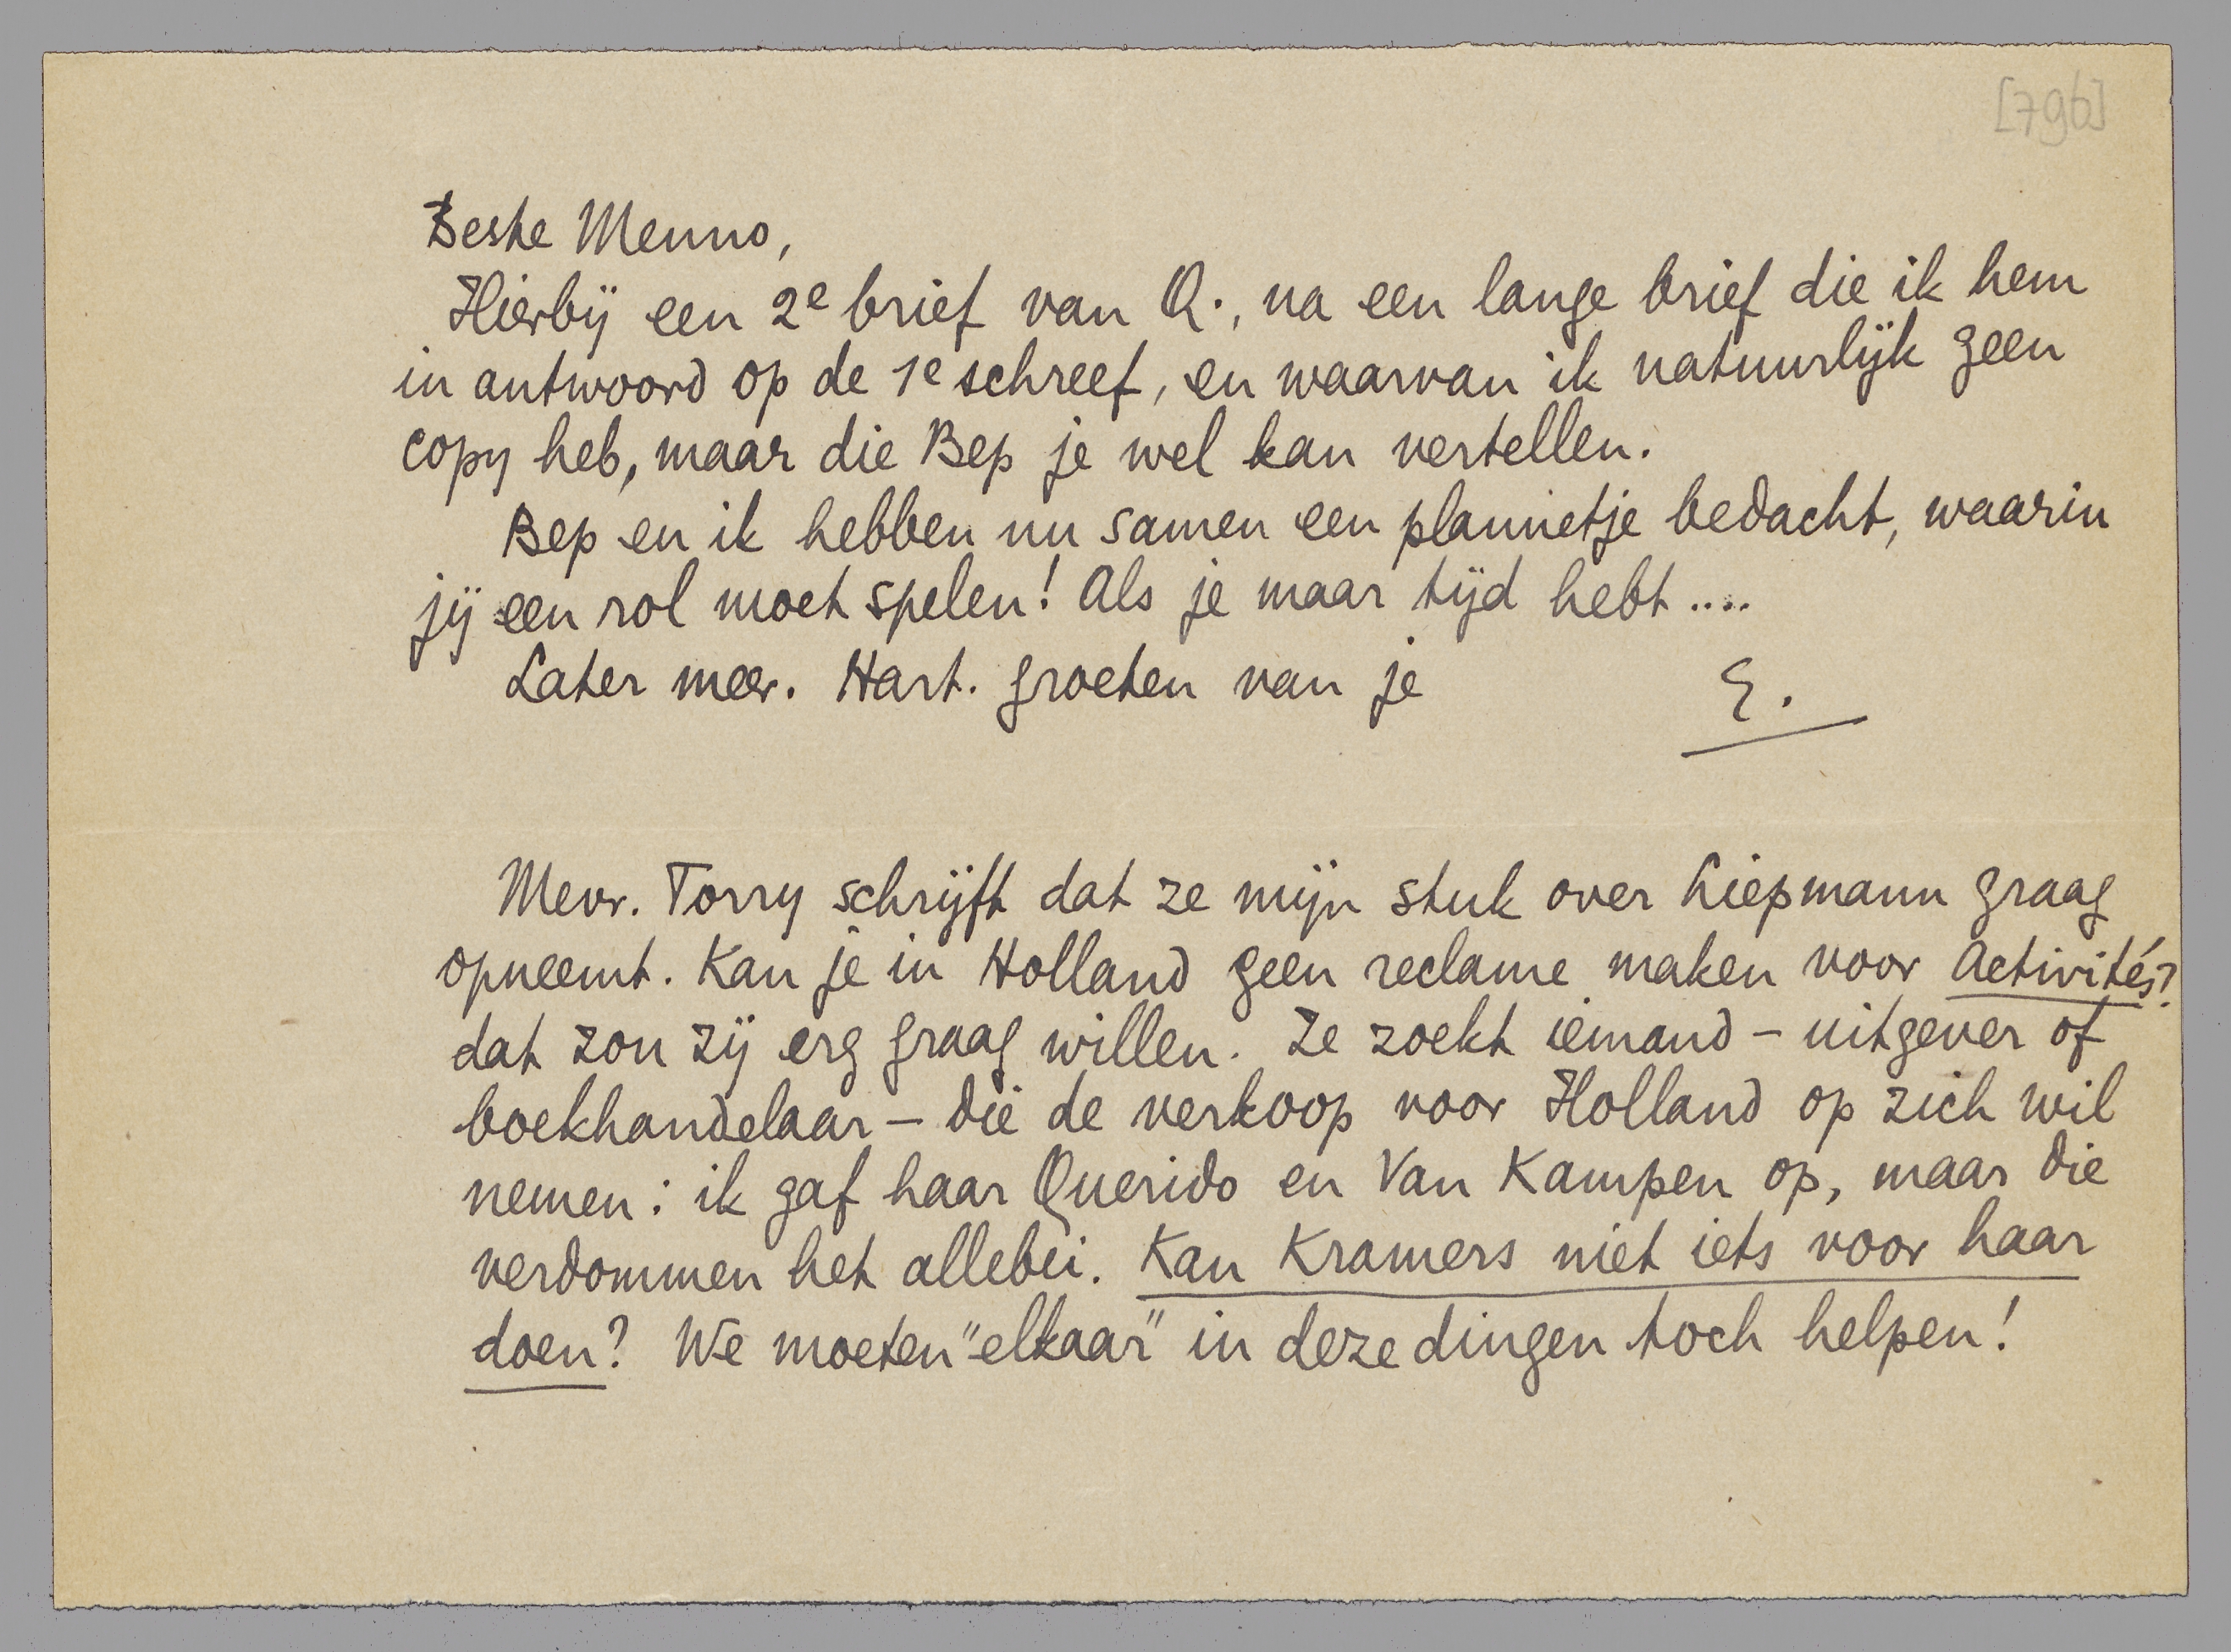 [796]
Beste Menno,
Hierbij een 2e brief van Q., na een lange brief die ik hem
in antwoord op de 1e schreef, en waarvan ik natuurlijk geen
copy heb, maar die Bep je wel kan vertellen.
Bep en ik hebben nu samen een plannetje bedacht, waarin
jij een rol moet spelen! Als je maar tijd hebt ....
Later meer. Hart. groeten van je E.
Mevr. Torry schrijft dat ze mijn stuk over Liepmann graag
opneemt. Kan je in Holland geen reclame maken voor Activités?
dat zou zij erg graag willen. Ze zoekt iemand – uitgever of
boekhandelaar – die de verkoop voor Holland op zich wil
nemen: ik gaf haar Querido en Van Kampen op, maar die
verdommen het allebei. Kan Kramers niet iets voor haar
doen? We moeten "elkaar" in deze dingen toch helpen!